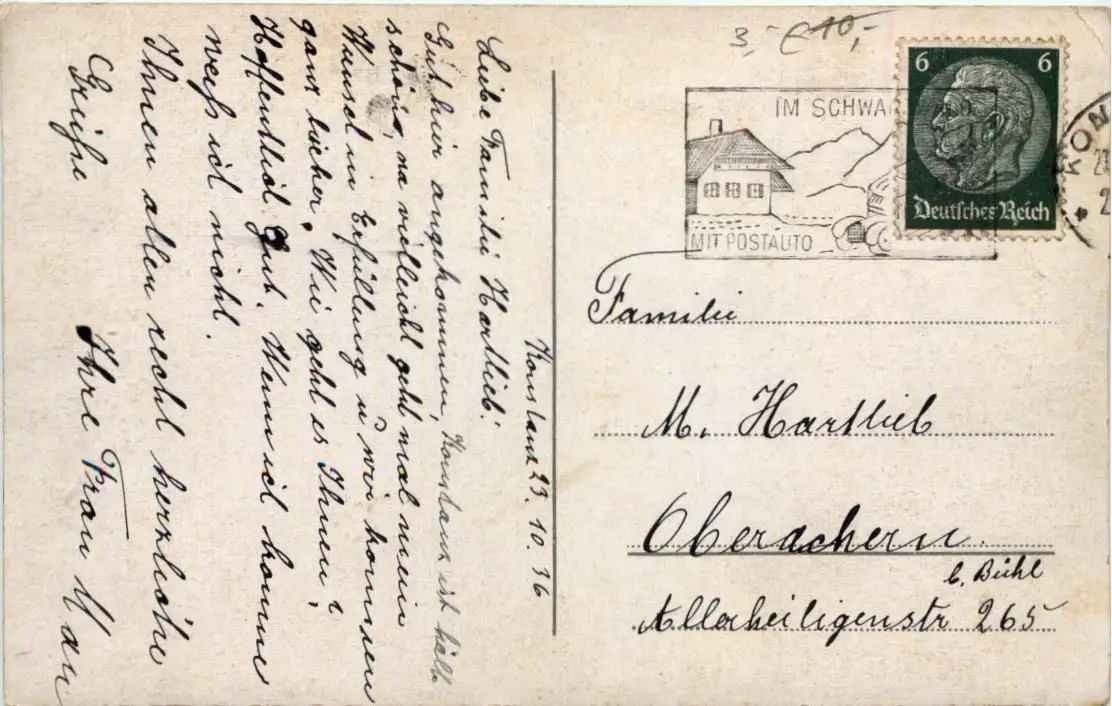 3,- € 10,-
IM SCHWA
MIT POSTAUTO
6 6
Deutsches Reich
KON
Konstanz 23. 10. 36
Liebe Familie Hartlieb!
Gut hier angekommen, Konstanz ist
schön, na vielleicht geht mal mein
Wunsch in Erfüllung u wir kommen
ganz hierher. Wie geht es Ihnen?
Hoffentlich Gut. Wenn ich komme
weiß ich nicht.
Ihnen allen recht herzliche
Grüße
Ihre Frau
Familie
M. Hartlieb
Oberachern.
b. Bühl
Allerheiligenstr 265